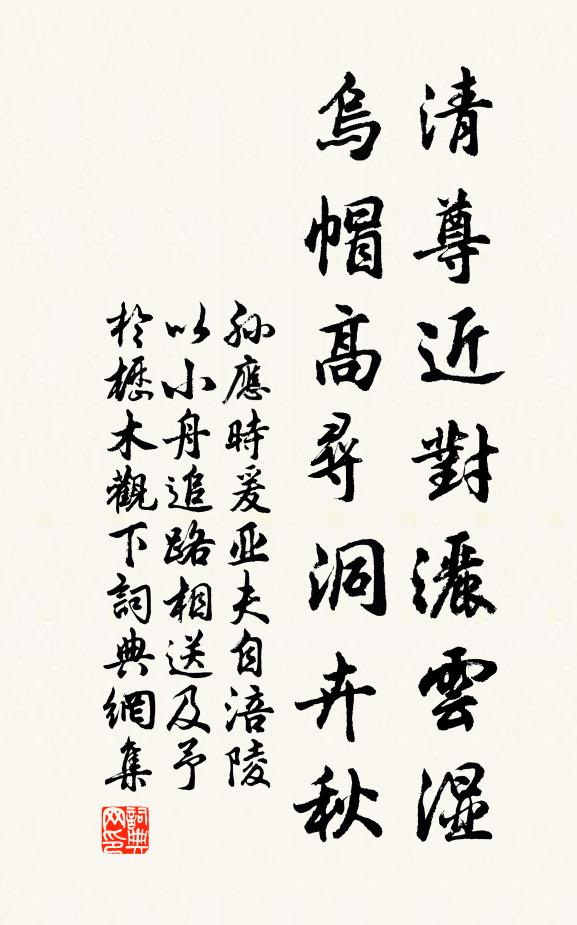 清尊近對灑雲湿
烏帽高尋洞卉秋
孫應時爰亚夫自涪陵
以小舟追路相送及予
於櫪木觀下詞典網集
詞典
网印